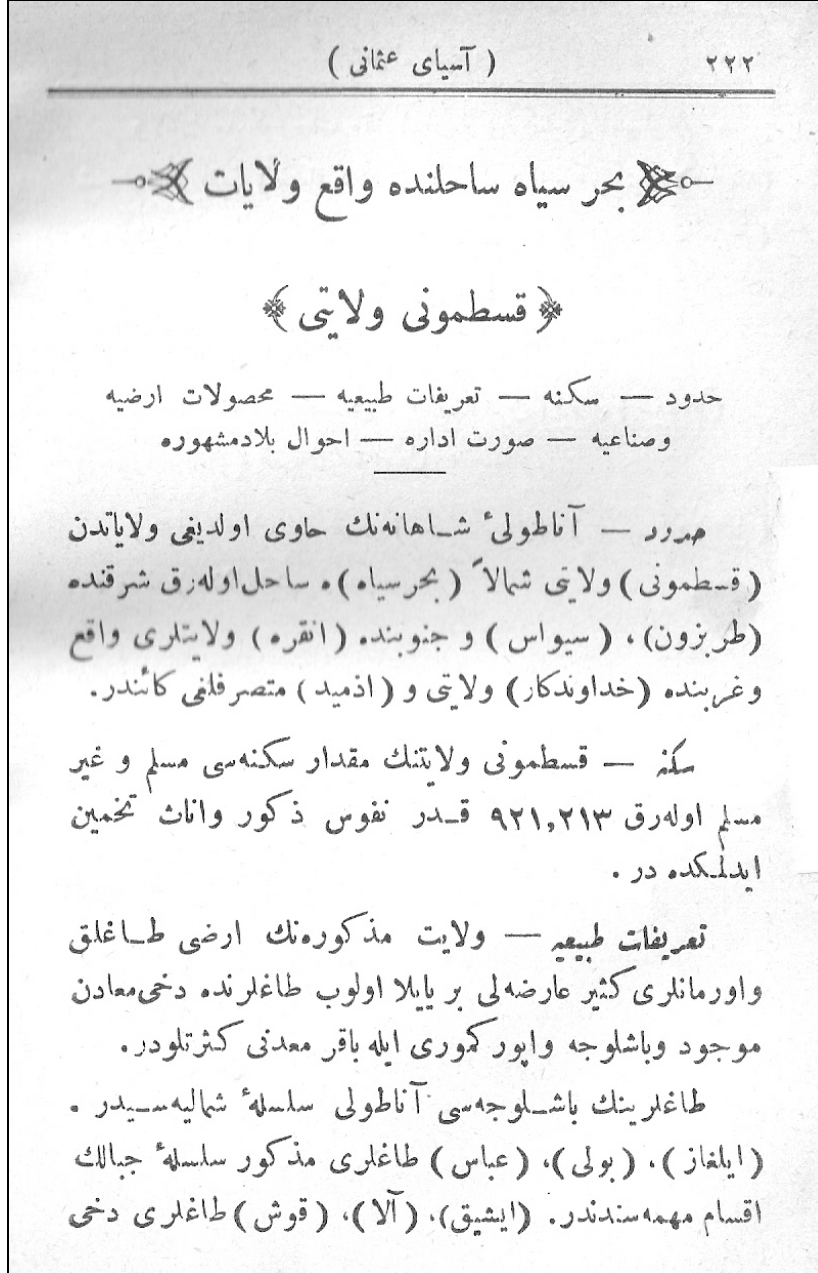 ٢٢٢ ( آسیای عثمانی )
بحر سیاه ساحلنده واقع ولایات
﴿ قسطمونی ولایتی ﴾
حدود — سکنه — تعریفات طبیعیه — محصولات ارضیه
وصناعیه — صورت اداره — احوال بلادمشهوره
حدود — آناطولیٔ شاهانه‌نك حاوی اولدیغی ولایاتدن
(قسطمونی) ولایتی شمالاً (بحرسیاه)ه ساحل‌اوله‌رق شرقنده
(طربزون)، (سیواس) و جنوبنده (انقره) ولایتلری واقع
وغربنده (خداوندکار) ولایتی و (اذمید) متصرفلغی کائندر.
سکنه — قسطمونی ولایتنك مقدار سکنه‌سی مسلم و غیر
مسلم اوله‌رق ٩٢١,٢١٣ قدر نفوس ذکور واناث تخمین
ایدلمکده در .
تعریفات طبیعیه — ولایت مذکوره‌نك ارضی طاغلق
واورمانلری کثیر عارضه‌لی بر یایلا اولوب طاغلرنده دخی‌معادن
موجود وباشلوجه واپور کموری ایله باقر معدنی کثرتلودر.
طاغلرینك باشلوجه‌سی آناطولی سلسلهٔ شمالیه‌سیدر .
(ایلغاز)، (بولی)، (عباس) طاغلری مذکور سلسلهٔ جبالك
اقسام مهمه‌سندندر. (ایشیق)، (آلا)، (قوش) طاغلری دخی